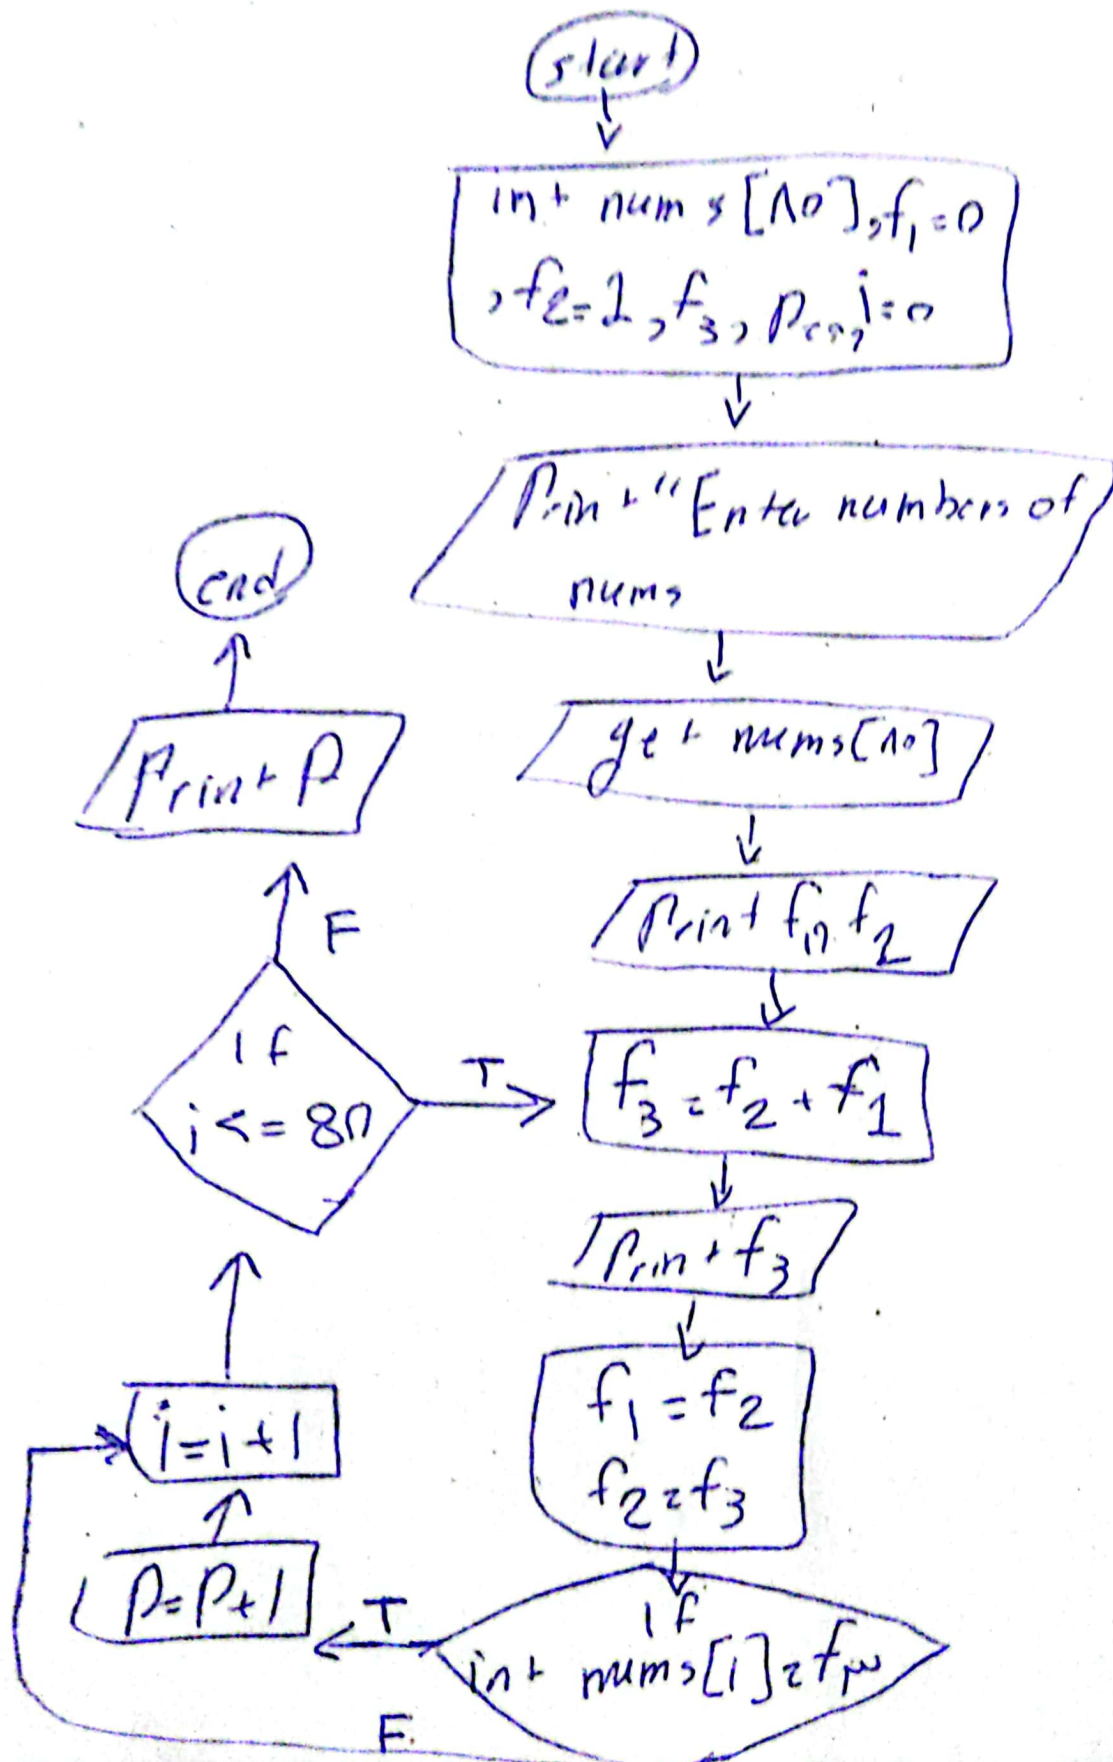 start
int nums[٨٠], f1=0
, f2=1, f3, P=0, i=0
Print "Enter numbers of
nums
get nums[٨٠]
Print f1, f2
f3 = f2 + f1
Print f3
f1 = f2
f2 = f3
if
int nums[i] = f٣
T
F
P=P+1
i=i+1
if
i <= 80
T
F
Print P
end